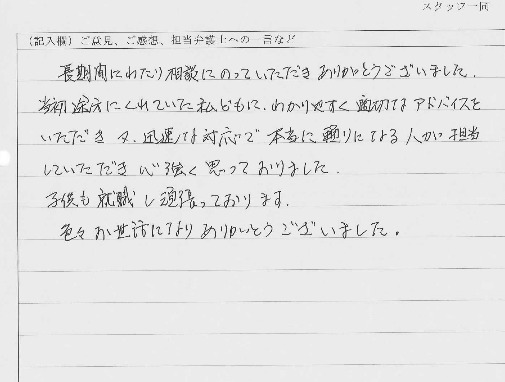 スタッフ一同
（記入欄）ご意見、ご感想、担当弁護士への一言など
長期間にわたり相談にのっていただきありがとうございました。
当初途方にくれていた私どもに、わかりやすく適切なアドバイスを
いただき又、迅速な対応で本当に頼りになる人が担当
していただき心強く思っておりました。
子供も就職し頑張っております。
色々お世話になりありがとうございました。